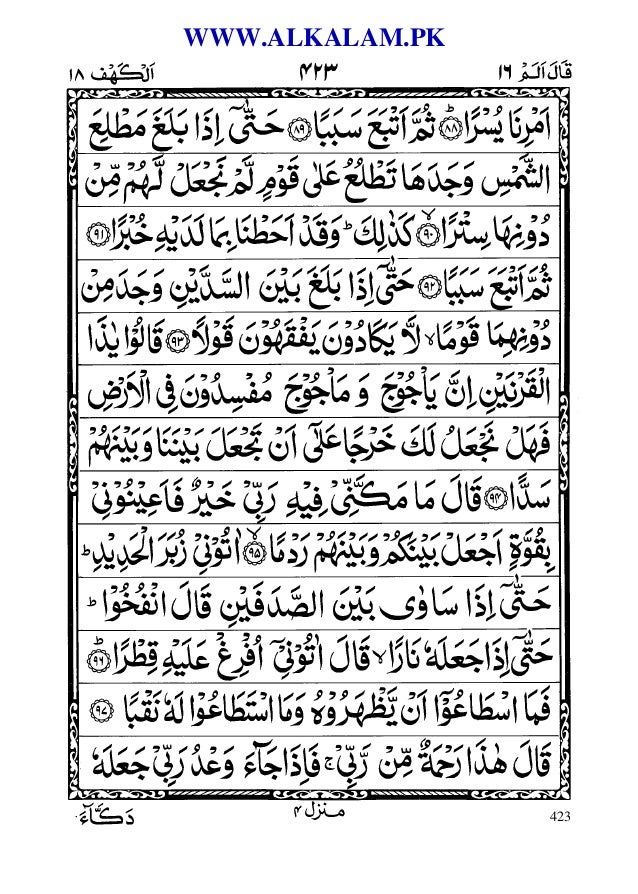 WWW.ALKALAM.PK
قَالَ اَلَمْ ١٦ ۴۲۳ اَلْكَهْف ١٨
اَمْرِنَا يُسْرًاؕ۸۸ ثُمَّ اَتْبَعَ سَبَبًا۸۹ حَتّٰۤى اِذَا بَلَغَ مَطْلِعَ
الشَّمْسِ وَجَدَهَا تَطْلُعُ عَلٰى قَوْمٍ لَّمْ نَجْعَلْ لَّهُمْ مِّنْ
دُوْنِهَا سِتْرًاۙ۹۰ كَذٰلِكَؕ وَقَدْ اَحَطْنَا بِمَا لَدَيْهِ خُبْرًا۹۱
ثُمَّ اَتْبَعَ سَبَبًا۹۲ حَتّٰۤى اِذَا بَلَغَ بَيْنَ السَّدَّيْنِ وَجَدَ مِنْ
دُوْنِهِمَا قَوْمًاۙ لَّا يَكَادُوْنَ يَفْقَهُوْنَ قَوْلًا۹۳ قَالُوْا يٰذَا
الْقَرْنَيْنِ اِنَّ يَاْجُوْجَ وَ مَاْجُوْجَ مُفْسِدُوْنَ فِى الْاَرْضِ
فَهَلْ نَجْعَلُ لَكَ خَرْجًا عَلٰۤى اَنْ تَجْعَلَ بَيْنَنَا وَبَيْنَهُمْ
سَدًّا۹۴ قَالَ مَا مَكَّنِّىْ فِيْهِ رَبِّىْ خَيْرٌ فَاَعِيْنُوْنِىْ
بِقُوَّةٍ اَجْعَلْ بَيْنَكُمْ وَبَيْنَهُمْ رَدْمًاۙ۹۵ اٰتُوْنِىْ زُبَرَ الْحَدِيْدِؕ
حَتّٰۤى اِذَا سَاوٰى بَيْنَ الصَّدَفَيْنِ قَالَ انْفُخُوْاؕ
حَتّٰۤى اِذَا جَعَلَهٗ نَارًاۙ قَالَ اٰتُوْنِىْۤ اُفْرِغْ عَلَيْهِ قِطْرًاؕ۹۶
فَمَا اسْطَاعُوْۤا اَنْ يَّظْهَرُوْهُ وَمَا اسْتَطَاعُوْا لَهٗ نَقْبًا۹۷
قَالَ هٰذَا رَحْمَةٌ مِّنْ رَّبِّىْۚ فَاِذَا جَآءَ وَعْدُ رَبِّىْ جَعَلَهٗ
دَكَّآءَۚ منزل ۴ 423